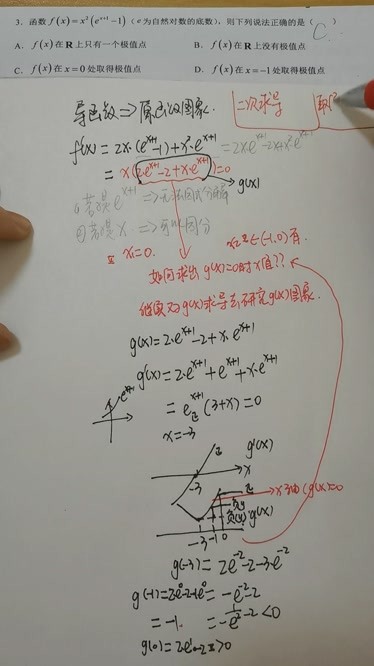 3. 函数 f(x)=x²(e^{x+1}-1)（e为自然对数的底数），则下列说法正确的是（ C ）
A. f(x) 在 R 上只有一个极值点 B. f(x) 在 R 上没有极值点
C. f(x) 在 x=0 处取得极值点 D. f(x) 在 x=-1 处取得极值点
导函数 ⇒ 原函数图象. 二次求导
f'(x)=2x·(e^{x+1}-1)+x²·e^{x+1} =2x·e^{x+1}-2x+x²·e^{x+1}
=x(2·e^{x+1}-2+x·e^{x+1})=0
g(x)
①若提 e^{x+1} ⇒
②若提 x ⇒ 可以因分
x₁=0. x₂∈(-1,0)有.
如何求出 g(x)=0时x值??
继续对g(x)求导去研究g(x)图象.
g(x)=2·e^{x+1}-2+x·e^{x+1}
g'(x)=2·e^{x+1}+e^{x+1}+x·e^{x+1}
=e^{x+1}(3+x)=0
正
e^{x+1}
x=-3
正 g'(x)
x
-3
g(x)=0
g(x)
-3 -1 0
g(-3)=2e^{-2}-2-3·e^{-2}
=-e^{-2}-2
g(-1)=2e⁰-2-1·e⁰
=-1. =-1/e²-2<0
g(0)=2·e¹-2>0